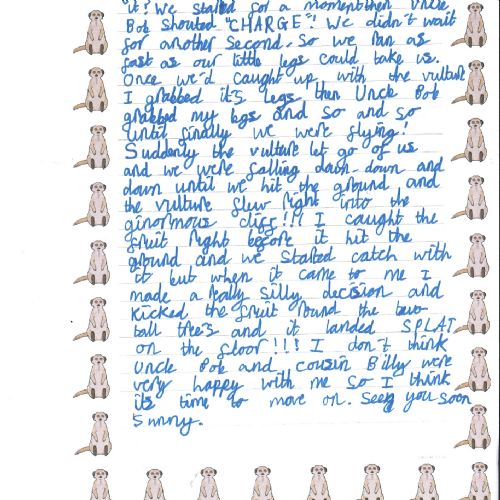 it? We stalled for a moment then Uncle
Bob shouted "CHARGE"! We didn't wait
for another second. So we ran as
fast as our little legs could take us.
Once we'd caught up with the vulture
I grabbed it's legs then Uncle Bob
grabbed my legs and so and so
until finally we were flying!
Suddenly the vulture let go of us
and we were falling down, down and
down until we hit the ground and
the vulture flew right into the
ginormous cliff!!! I caught the
fruit right before it hit the
ground and we started catch with
it but when it came to me I
made a really silly decision and
kicked the fruit round the two
tall trees and it landed SPLAT
on the floor!!! I don't think
Uncle Bob and cousin Billy were
very happy with me so I think
its time to move on. Seey you soon
Sunny.